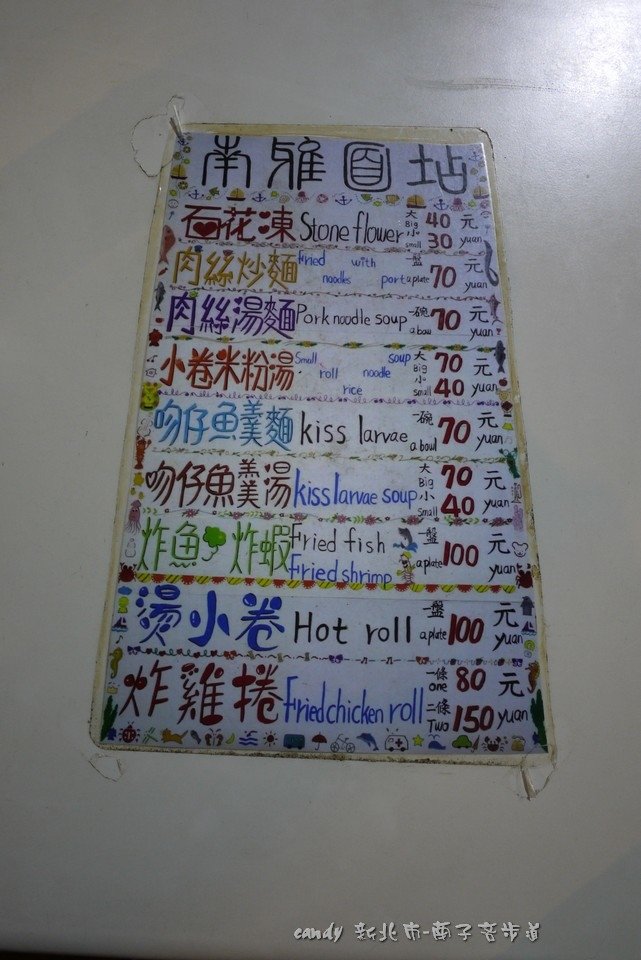 南雅
石花凍 Stone flower 大 Big 40 小 small 30 元 yuan
肉絲炒麵 Fried with noodles port 一盤 a plate 70 元 yuan
肉絲湯麵 Pork noodle soup 一碗 a bowl 70 元 yuan
小卷米粉湯 Small soup roll noodle rice 大 Big 70 小 small 40 元 yuan
吻仔魚羹麵 kiss larvae 一碗 a bowl 70 元 yuan
吻仔魚羹湯 kiss larvae soup 大 Big 70 小 small 40 元 yuan
炸魚 炸蝦 Fried fish Fried shrimp 一盤 a plate 100 元 yuan
燙小卷 Hot roll 一盤 a plate 100 元 yuan
炸雞捲 Fried chicken roll 一條 one 80 二條 Two 150 元 yuan
candy 新北市-南子吝步道